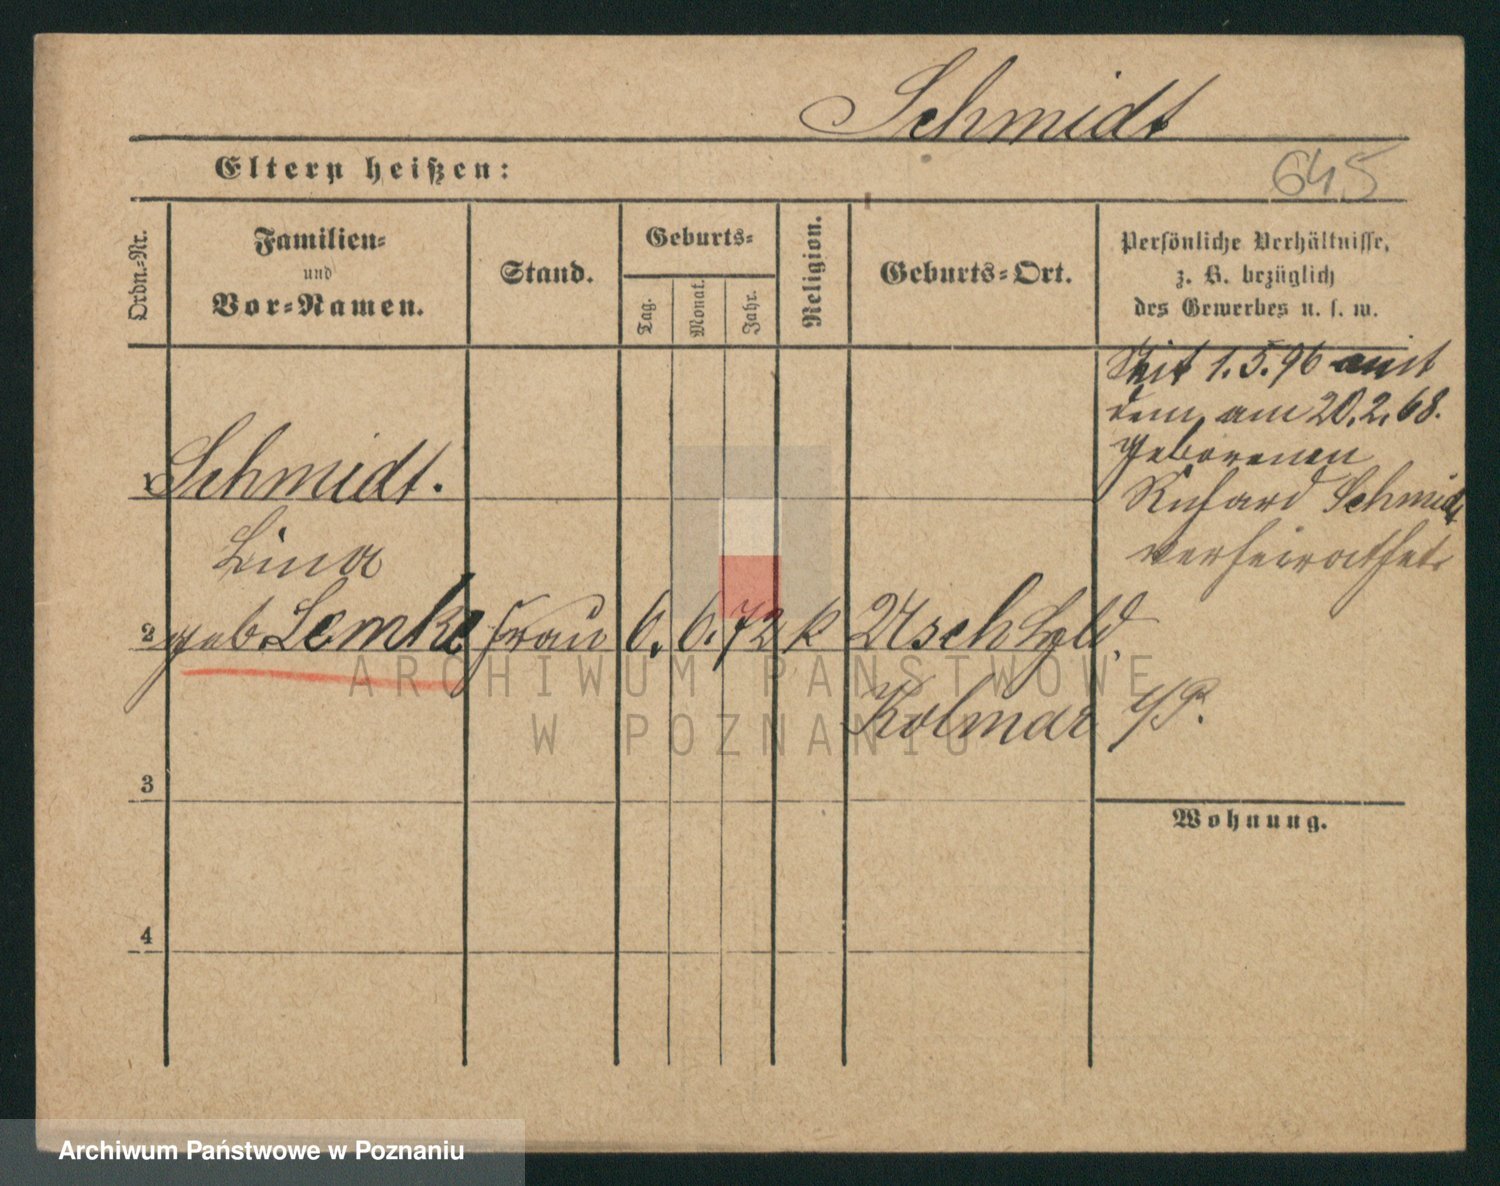 Schmidt
Eltern heißen:
645
Ordn.-Nr.
Familien-
und
Vor-Namen.
Stand.
Geburts-
Tag.
Monat.
Jahr.
Religion.
Geburts-Ort.
Persönliche Verhältnisse,
z. B. bezüglich
des Gewerbes u. s. w.
Seit 1.5.96 mit
dem am 20.2.68.
geborenen
Richard Schmidt
verheirathet.
1 Schmidt.
Lina
2 geb. Lemke Frau 6. 6. 72 k Usch Hgld.
Kolmar i/P.
3
Wohnung.
4
ARCHIWUM PAŃSTWOWE
W POZNANIU
Archiwum Państwowe w Poznaniu